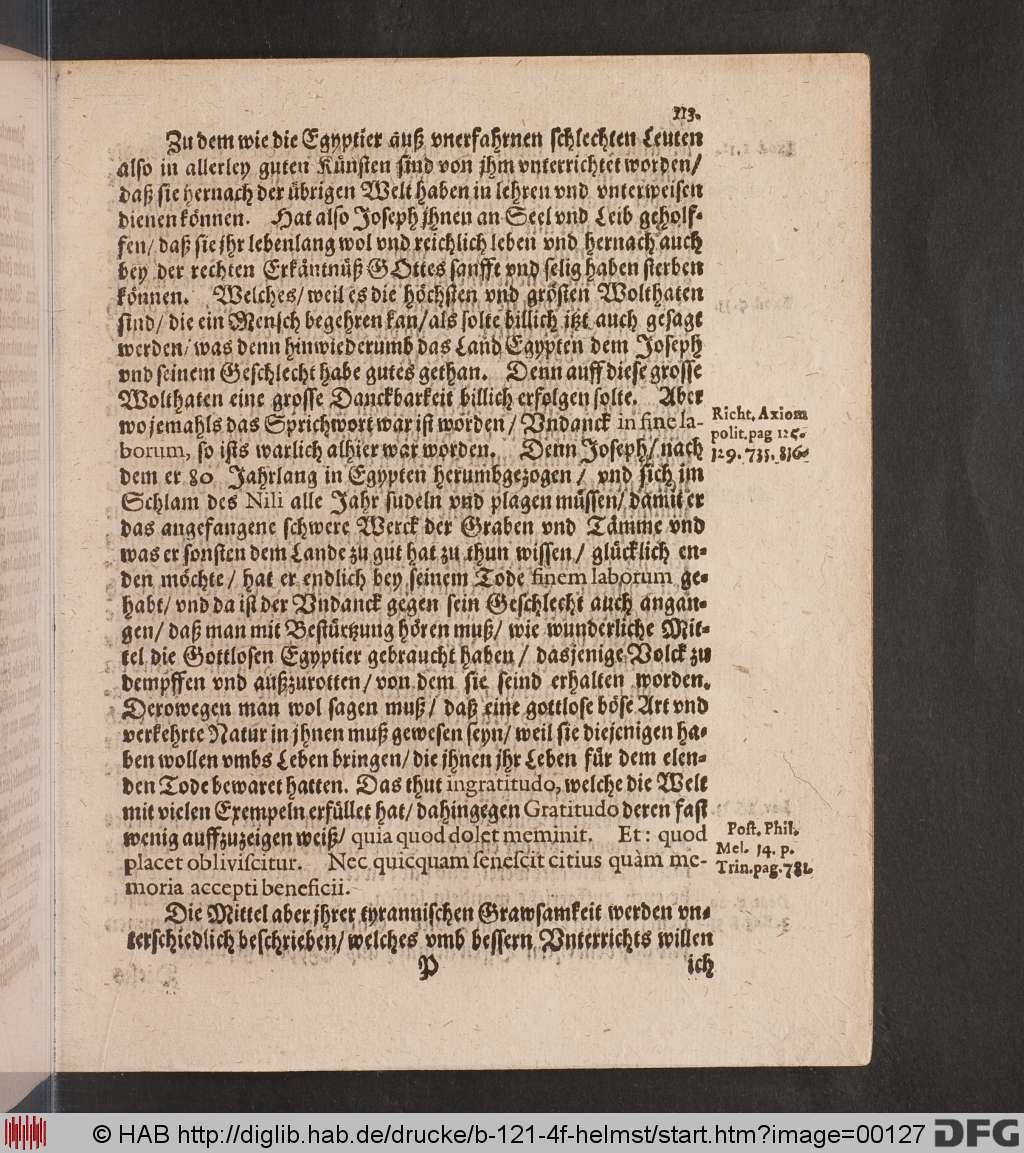 113.
Zu dem wie die Egyptier auß vnerfahrnen schlechten Leuten
also in allerley guten Künsten sind von jhm vnterrichtet worden/
daß sie hernach der übrigen Welt haben in lehren vnd vnterweisen
dienen können. Hat also Joseph jhnen an Seel vnd Leib geholf-
fen/ daß sie jhr lebenlang wol vnd reichlich leben vnd hernach auch
bey der rechten Erkäntnüß GOttes sanfft vnd selig haben sterben
können. Welches/ weil es die höchsten vnd grösten Wolthaten
sind/ die ein Mensch begehren kan/ als solte billich itzt auch gesagt
werden/ was denn hinwiederumb das Land Egypten dem Joseph
vnd seinem Geschlecht habe gutes gethan. Denn auff diese grosse
Wolthaten eine grosse Danckbarkeit billich erfolgen solte. Aber
wo jemahls das Sprichwort war ist worden/ Vndanck in fine la-
borum, so ists warlich alhier war worden. Denn Joseph/ nach
dem er 80 Jahrlang in Egypten herumbgezogen/ vnd sich im
Schlam des Nili alle Jahr sudeln vnd plagen müssen/ damit er
das angefangene schwere Werck der Graben vnd Tämme vnd
was er sonsten dem Lande zu gut hat zu thun wissen/ glücklich en-
den möchte/ hat er endlich bey seinem Tode finem laborum ge-
habt/ vnd da ist der Vndanck gegen sein Geschlecht auch angan-
gen/ daß man mit Bestürtzung hören muß/ wie wunderliche Mit-
tel die Gottlosen Egyptier gebraucht haben/ dasjenige Volck zu
dempffen vnd außzurotten/ von dem sie seind erhalten worden.
Derowegen man wol sagen muß/ daß eine gottlose böse Art vnd
verkehrte Natur in jhnen muß gewesen seyn/ weil sie diejenigen ha-
ben wollen vmbs Leben bringen/ die jhnen jhr Leben für dem elen-
den Tode bewaret hatten. Das thut ingratitudo, welche die Welt
mit vielen Exempeln erfüllet hat/ dahingegen Gratitudo deren fast
wenig auffzuzeigen weiß/ quia quod dolet meminit. Et: quod
placet obliviſcitur. Nec quicquam ſeneſcit citius quàm me-
moria accepti beneficii.
Die Mittel aber jhrer tyrannischen Grawsamkeit werden vn-
terschiedlich beschrieben/ welches vmb bessern Vnterrichts willen
P ich
Richt. Axiom
polit. pag 125.
129. 735. 816.
Post. Phil.
Mel. 14. p.
Trin. pag. 781.
© HAB http://diglib.hab.de/drucke/b-121-4f-helmst/start.htm?image=00127 DFG